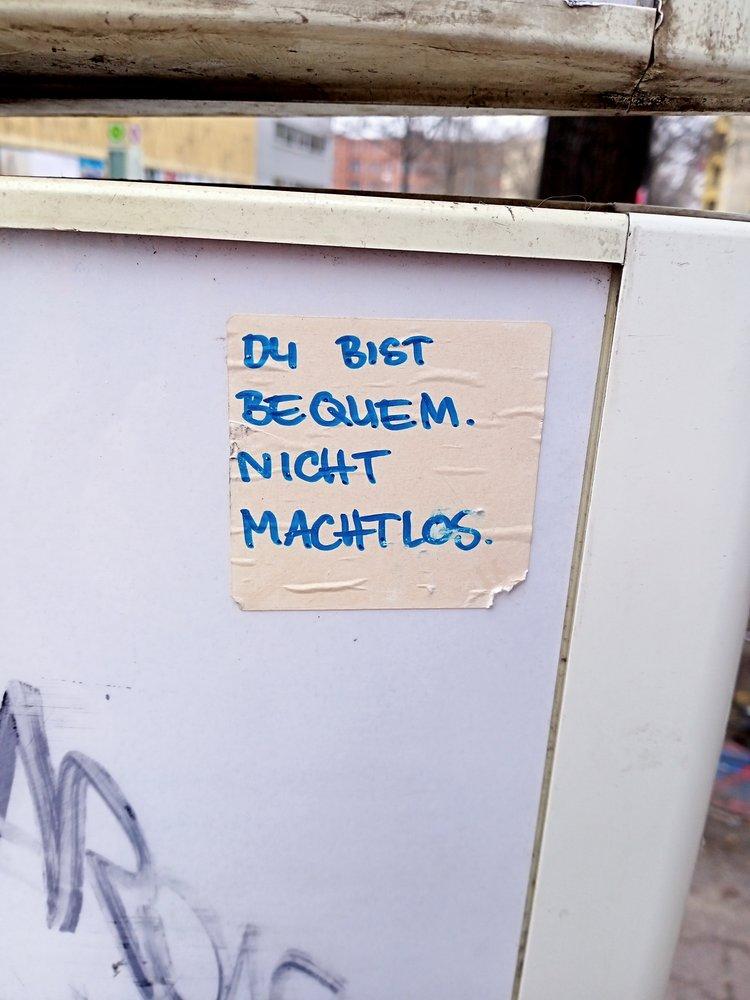 DU BIST
BEQUEM.
NICHT
MACHTLOS.